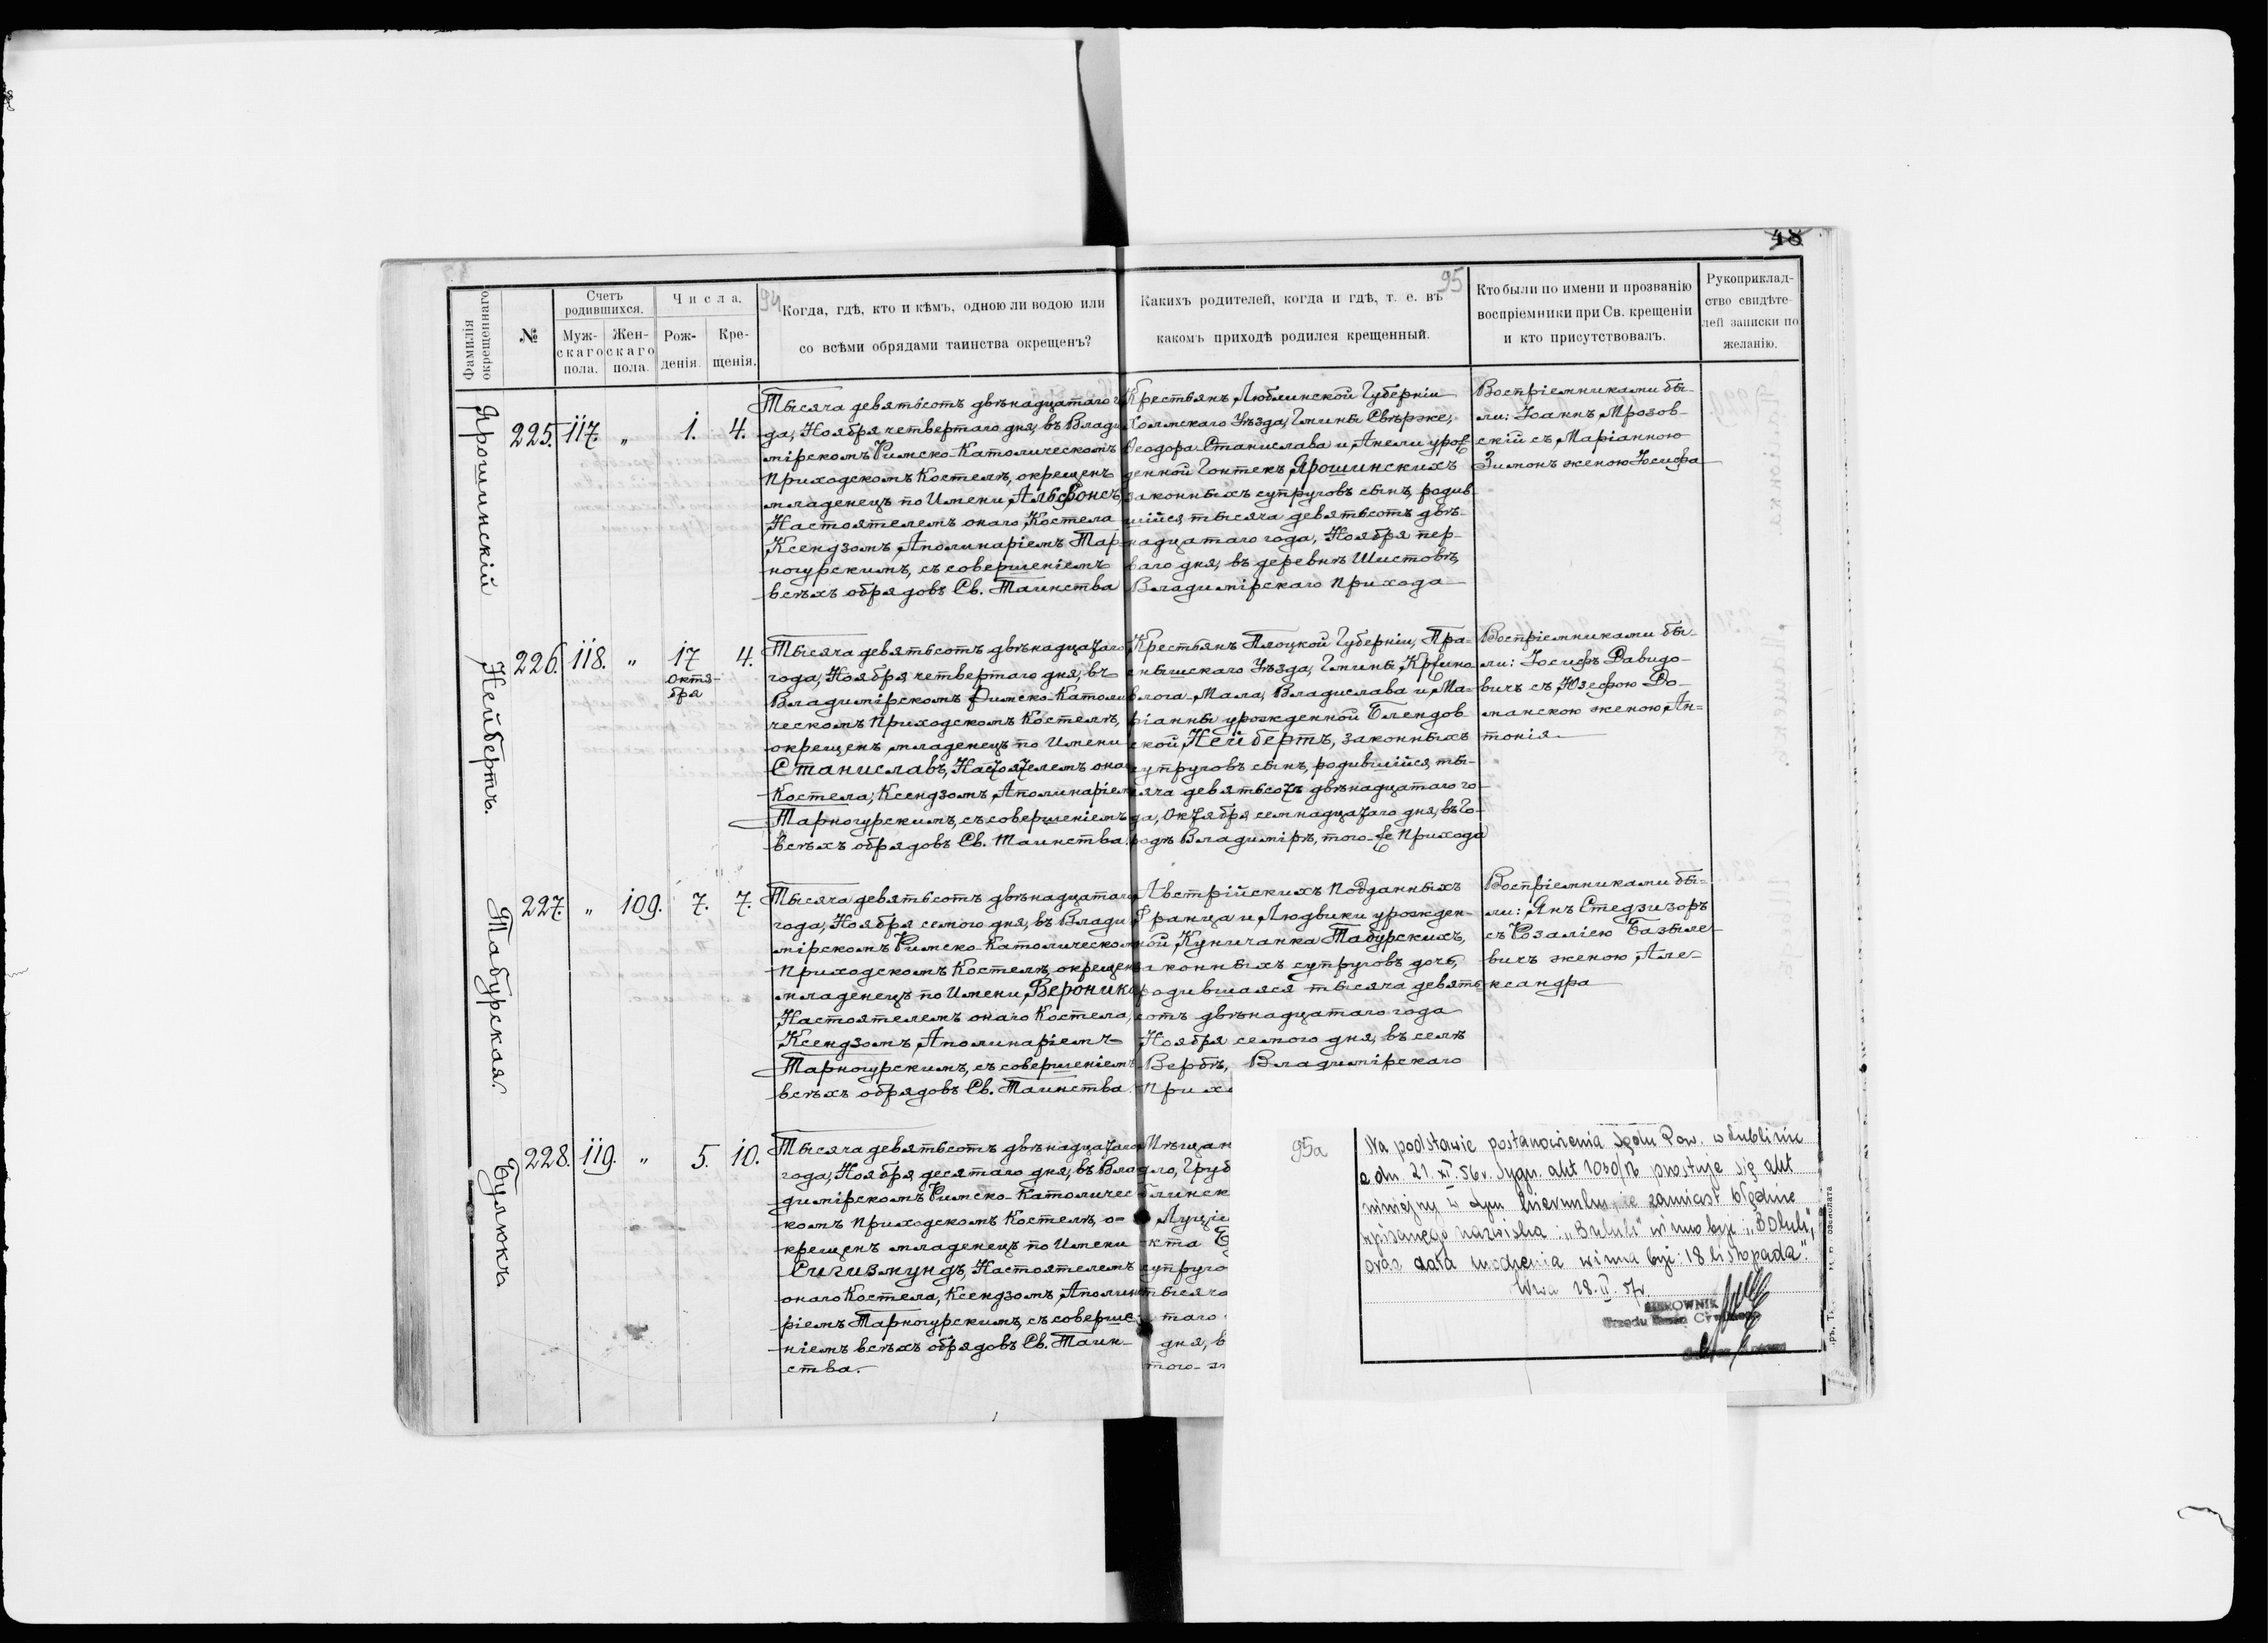 48
94
95
Фамилія окрещеннаго.
№
Счетъ родившихся.
Муж-
скаго
пола.
Жен-
скаго
пола.
Числа.
Рож-
денія.
Кре-
щенія.
Когда, гдѣ, кто и кѣмъ, одною ли водою или
со всѣми обрядами таинства окрещенъ?
Какихъ родителей, когда и гдѣ, т. е. въ
какомъ приходѣ родился крещенный.
Кто были по имени и прозванію
воспріемники при Св. крещеніи
и кто присутствовалъ.
Рукоприклад-
ство свидѣте-
лей записки по
желанію.
Ярошинскій
225. 117. „ 1. 4.
Тысяча девятьсотъ двѣнадцатаго г
да, Ноября четвертаго дня, въ Влади
мірскомъ Римско-Католическомъ
Приходскомъ Костелѣ, окрещенъ
младенецъ по Имени Альфонсъ,
Настоятелемъ онаго Костела
Ксендзомъ Аполинаріемъ Тар-
ногурскимъ, съ совершеніемъ
всѣхъ обрядовъ Св. Таинства
Крестьянъ, Люблинской Губерніи
Холмскаго Уѣзда, Гмины Свѣрже,
Ѳеодора-Станислава и Анели урож
денной Гонтекъ Ярошинскихъ
законныхъ супруговъ сынъ, родив-
шійся тысяча девятьсотъ двѣ-
надцатаго года, Ноября пер-
ваго дня, въ деревнѣ Шистовѣ,
Владимірскаго прихода
Воспріемниками бы-
ли: Іоаннъ Мрозов-
скій съ Маріанною
Зимонъ женою Іосифа
Нейбертъ.
226. 118. „ 17 октя-
бря 4.
Тысяча девятьсотъ двѣнадцатаго
года, Ноября четвертаго дня, въ
Владимірскомъ Римско-Католи
ческомъ Приходскомъ Костелѣ,
окрещенъ младенецъ по Имени
Станиславъ, Настоятелемъ она
Костела, Ксендзомъ Аполинаріем
Тарногурскимъ, съ совершеніемъ
всѣхъ обрядовъ Св. Таинства.
Крестьянъ Плоцкой Губерніи, Пра-
снышскаго Уѣзда, Гмины
Мала, Владислава и Ма-
ріанны урожденной Блендов
ской Нейбертъ, законныхъ
супруговъ сынъ, родившійся ты-
сяча девятьсотъ двѣнадцатаго го-
да, Октября семнадцатаго дня, въ Го-
родѣ Владимірѣ, того-же Прихода
Воспріемниками бы-
ли: Іосифъ Давидо-
вичъ съ Юзефою До-
манскою женою Ан-
тонія
Табурская
227. „ 109. 7. 7.
Тысяча девятьсотъ двѣнадцатаго
года, Ноября семого дня, въ Влади
мірскомъ Римско-Католическом
Приходскомъ Костелѣ, окрещенъ
младенецъ по Имени Вероника
Настоятелемъ онаго Костела,
Ксендзомъ Аполинаріемъ
Тарногурскимъ, съ совершеніемъ
всѣхъ обрядовъ Св. Таинства.
Австрійскихъ Подданныхъ
Франца и Людвики урожден-
ной Куничанка Табурскихъ,
законныхъ супруговъ дочь,
родившаяся тысяча девять-
сотъ двѣнадцатаго года
Ноября семого дня, въ селѣ
Вербѣ, Владимірскаго
При х
Воспріемниками бы-
ли: Янъ Стедзизоръ
съ Розаліею Базыле-
вичъ женою Але-
ксандра
Булюкъ
228. 119. „ 5. 10.
Тысяча девятьсотъ двѣнадцатаго
года, Ноября десятаго дня, въ Вла
димірскомъ Римско-Католичес
комъ Приходскомъ Костелѣ, о-
крещенъ младенецъ по Имени
Сигизмундъ, Настоятелемъ
онаго Костела, Ксендзомъ Аполина
ріемъ Тарногурскимъ, съ соверше-
ніемъ всѣхъ обрядовъ Св. Таин-
ства.
Мѣщан
дло, Груб
блинск
Луці
кта Б
супруго
тысяча
таго
дня, в
того-
95a
Na podstawie postanowienia Sądu Pow. w Lublinie
z dn. 21 XI 56 r. Sygn. akt 1030/56 prostuje się akt
niniejszy w tym że zamiast błędnie
wpisanego nazwiska: „Buluk” winno być: „Boluk”,
oraz data urodzenia winna być: 18 listopada”.
Wwa 28.II.57 r.
KIEROWNIK
Urzędu Stanu Cywilnego